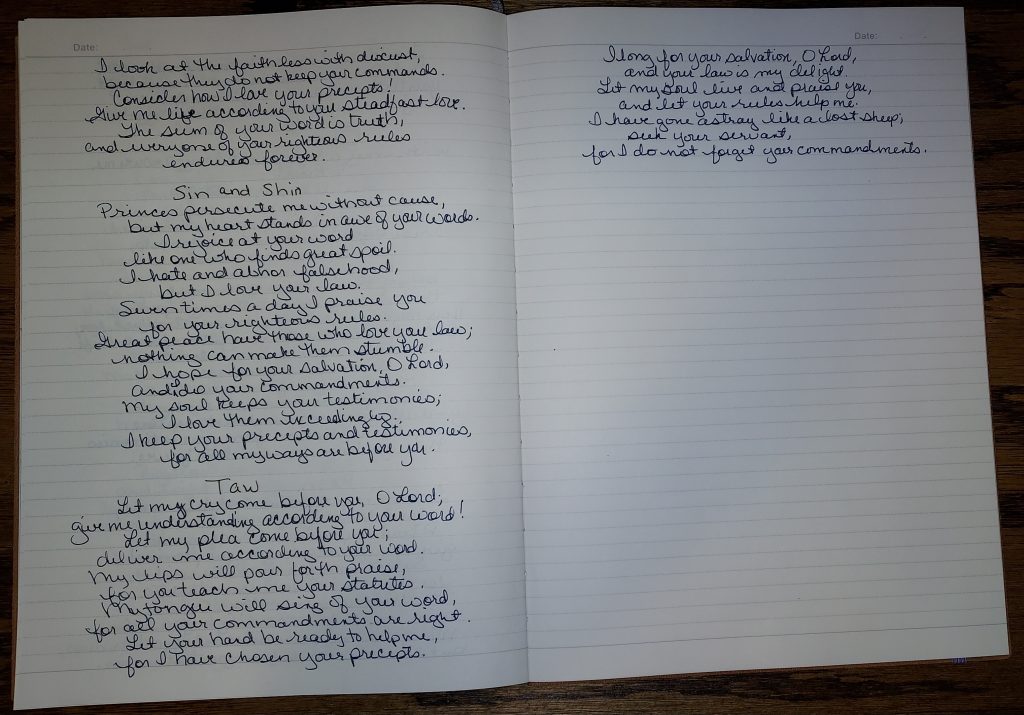 Date:
I look at the faithless with disgust,
because they do not keep your commands.
Consider how I love your precepts!
Give me life according to your steadfast love.
The sum of your word is truth,
and every one of your righteous rules
endures forever.
Sin and Shin
Princes persecute me without cause,
but my heart stands in awe of your words.
I rejoice at your word
like one who finds great spoil.
I hate and abhor falsehood,
but I love your law.
Seven times a day I praise you
for your righteous rules.
Great peace have those who love your law;
nothing can make them stumble.
I hope for your salvation, O Lord,
and I do your commandments.
My soul keeps your testimonies;
I love them exceedingly.
I keep your precepts and testimonies,
for all my ways are before you.
Taw
Let my cry come before you, O Lord;
give me understanding according to your word!
Let my plea come before you;
deliver me according to your word.
My lips will pour forth praise,
for you teach me your statutes.
My tongue will sing of your word,
for all your commandments are right.
Let your hand be ready to help me,
for I have chosen your precepts.
Date:
I long for your salvation, O Lord,
and your law is my delight.
Let my soul live and praise you,
and let your rules help me.
I have gone astray like a lost sheep;
seek your servant,
for I do not forget your commandments.